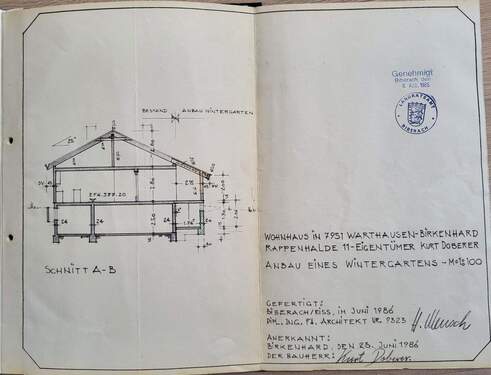 BESTAND ANBAU WINTERGARTEN
25°
EFH. 577.20
2.75
24
24
SCHNITT A-B
Genehmigt
Biberach, den
LANDRATSAMT
BIBERACH
WOHNHAUS IN 7951 WARTHAUSEN-BIRKENHARD
RAPPENHALDE 11-EIGENTÜMER KURT DOBERER
ANBAU EINES WINTERGARTENS - M=1:100
GEFERTIGT:
BIBERACH/RISS, IM JUNI 1986
DIPL. ING. FH. ARCHITEKT NR. 9323
ANERKANNT:
BIRKENHARD, DEN 25. JUNI 1986
DER BAUHERR: Kurt Doberer